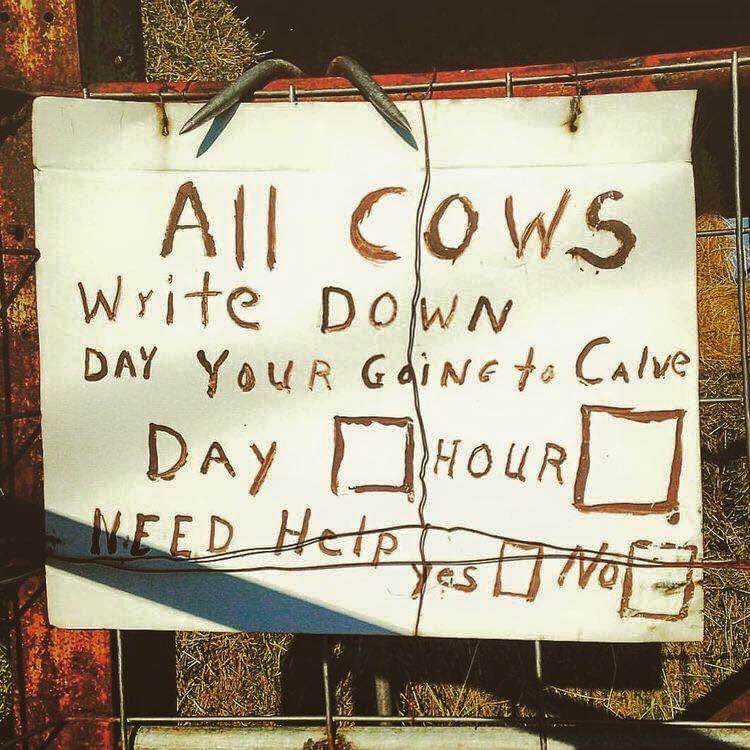 All COWS
Write DOWN
DAY YOUR GOiNG to CAlve
DAY HOUR
NEED Help
yes No